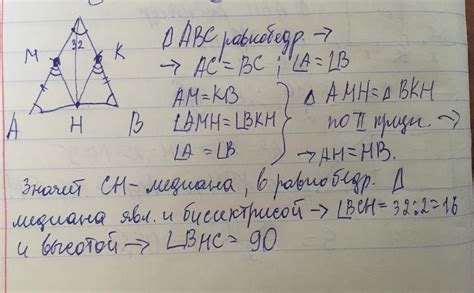 M 32 K
A H B
Δ ABC равнобедр. →
→ AC = BC ; ∠A = ∠B
AM = KB
∠AMH = ∠BKH
∠A = ∠B
Δ AMH = Δ BKH
по II призн. →
→ AH = HB.
Значит CH - медиана, в равнобедр. Δ
медиана явл. и биссектрисой → ∠BCH = 32:2 = 16
и высотой → ∠BHC = 90